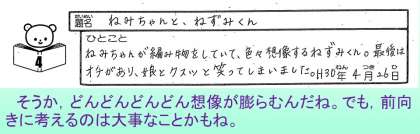 だいめい
題名 ねみちゃんと、ねずみくん
4
ひとこと
ねみちゃんが編み物をしていて、色々想像するねずみくん。最後は
オチがあり、娘とクスッと笑ってしまいました。(H30ねん年4がつ月26にち日)
そうか，どんどんどんどん想像が膨らむんだね。でも，前向
きに考えるのは大事なことかもね。